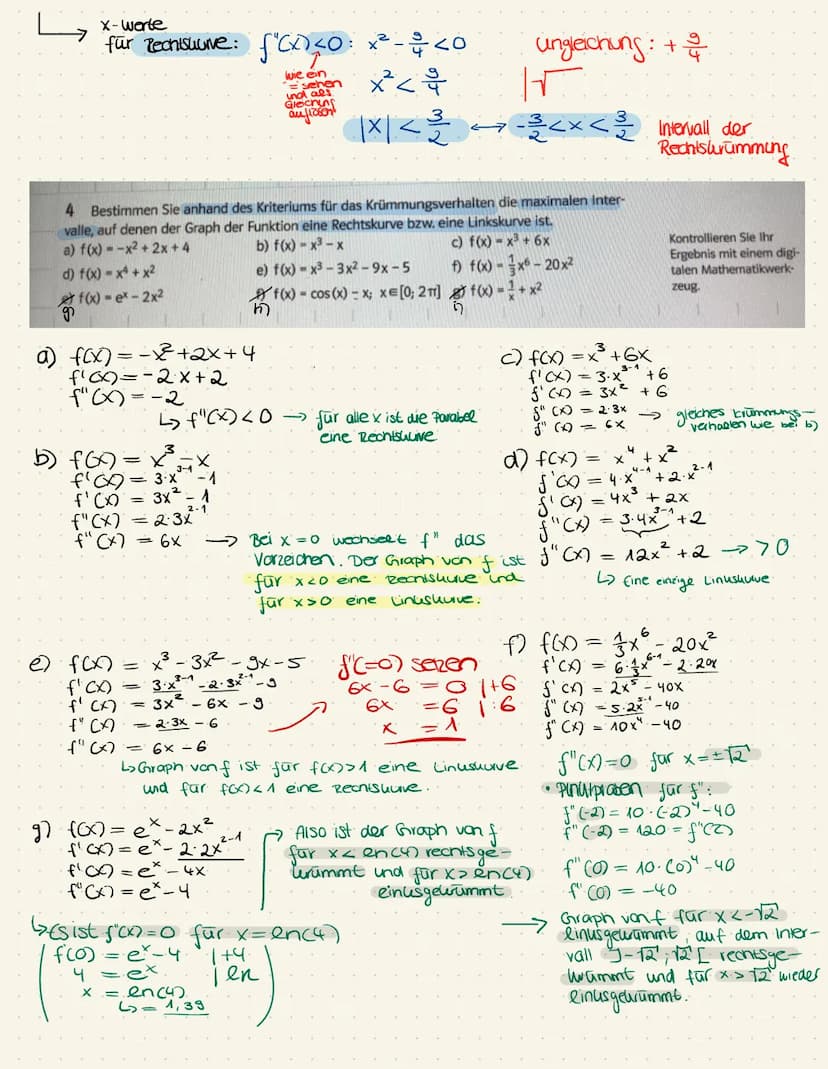 x-Werte
für Rechtskurve: f"(x)<0: x² - 9/4 < 0
Ungleichung: + 9/4
wie ein
"=" sehen
und als
Gleichung
auflösen!
x² < 9/4
|√
|x| < 3/2 ⟷ -3/2 < x < 3/2
Intervall der
Rechtskrümmung
4 Bestimmen Sie anhand des Kriteriums für das Krümmungsverhalten die maximalen Inter-
valle, auf denen der Graph der Funktion eine Rechtskurve bzw. eine Linkskurve ist.
a) f(x) = -x² + 2x + 4 b) f(x) = x³ - x c) f(x) = x³ + 6x
d) f(x) = x⁴ + x² e) f(x) = x³ - 3x² - 9x - 5 f) f(x) = 1/3x⁶ - 20x²
g) f(x) = eˣ - 2x² h) f(x) = cos(x) - x; x∈[0; 2π] i) f(x) = 1/x + x²
Kontrollieren Sie Ihr
Ergebnis mit einem digi-
talen Mathematikwerk-
zeug.
a) f(x) = -x² + 2x + 4
f'(x) = -2·x + 2
f"(x) = -2
↳ f"(x) < 0 → für alle x ist die Parabel
eine Rechtskurve
b) f(x) = x³ - x
f'(x) = 3·x³⁻¹ - 1
f'(x) = 3x² - 1
f"(x) = 2·3x²⁻¹
f"(x) = 6x → Bei x = 0 wechselt f" das
Vorzeichen. Der Graph von f ist
für x<0 eine Rechtskurve und
für x>0 eine Linkskurve.
c) f(x) = x³ + 6x
f'(x) = 3·x³⁻¹ + 6
f'(x) = 3x² + 6
f"(x) = 2·3x → gleiches Krümmungs-
f"(x) = 6x verhalten wie bei b)
d) f(x) = x⁴ + x²
f'(x) = 4·x⁴⁻¹ + 2·x²⁻¹
f'(x) = 4x³ + 2x
f"(x) = 3·4x³⁻¹ + 2
f"(x) = 12x² + 2 → > 0
↳ Eine einzige Linkskurve
e) f(x) = x³ - 3x² - 9x - 5
f'(x) = 3·x³⁻¹ - 2·3x²⁻¹ - 9
f'(x) = 3x² - 6x - 9
f"(x) = 2·3x - 6
f"(x) = 6x - 6
f"(=0) sezen
6x - 6 = 0 |+6
6x = 6 |:6
x = 1
↳ Graph von f ist für f(x)>1 eine Linkskurve
und für f(x)<1 eine Rechtskurve.
f) f(x) = 1/3x⁶ - 20x²
f'(x) = 6·1/3x⁶⁻¹ - 2·20x
f'(x) = 2x⁵ - 40x
f"(x) = 5·2x⁵⁻¹ - 40
f"(x) = 10x⁴ - 40
f"(x)=0 für x=±√2
• Punktproben für f":
f"(-2) = 10·(-2)⁴ - 40
f"(-2) = 120 = f"(2)
f"(0) = 10·(0)⁴ - 40
f"(0) = -40
→ Graph von f für x<-√2
linksgekrümmt, auf dem Inter-
vall ]-√2; √2[ rechtsge-
krümmt und für x>√2 wieder
linksgekrümmt.
g) f(x) = eˣ - 2x²
f'(x) = eˣ - 2·2x²⁻¹
f'(x) = eˣ - 4x
f"(x) = eˣ - 4
→ Also ist der Graph von f
für x< ln(4) rechtsge-
krümmt und für x> ln(4)
linksgekrümmt
↳ Es ist f"(x)=0 für x=ln(4)
f(0) = eˣ - 4 |+4
4 = eˣ | ln
x = ln(4)
↳ = 1,39